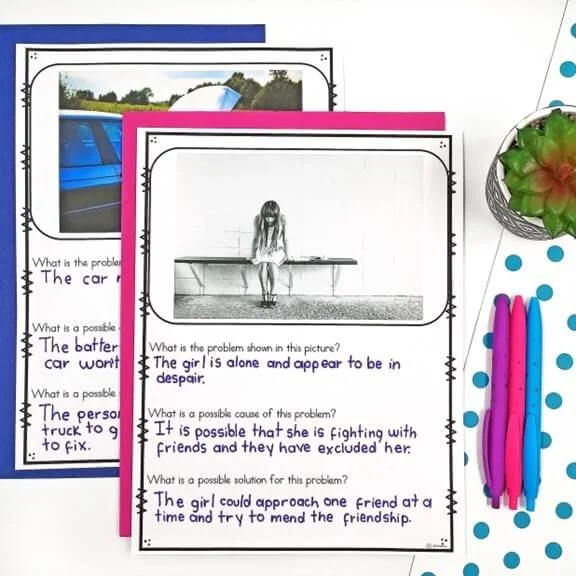 What is the
The car
What is a possible
The
car won't
What is a possible
The
truck to
to fix.
What is the problem shown in this picture?
The girl is alone and appear to be in
despair.
What is a possible cause of this problem?
It is possible that she is fighting with
friends and they have excluded her.
What is a possible solution for this problem?
The girl could approach one friend at a
time and try to mend the friendship.